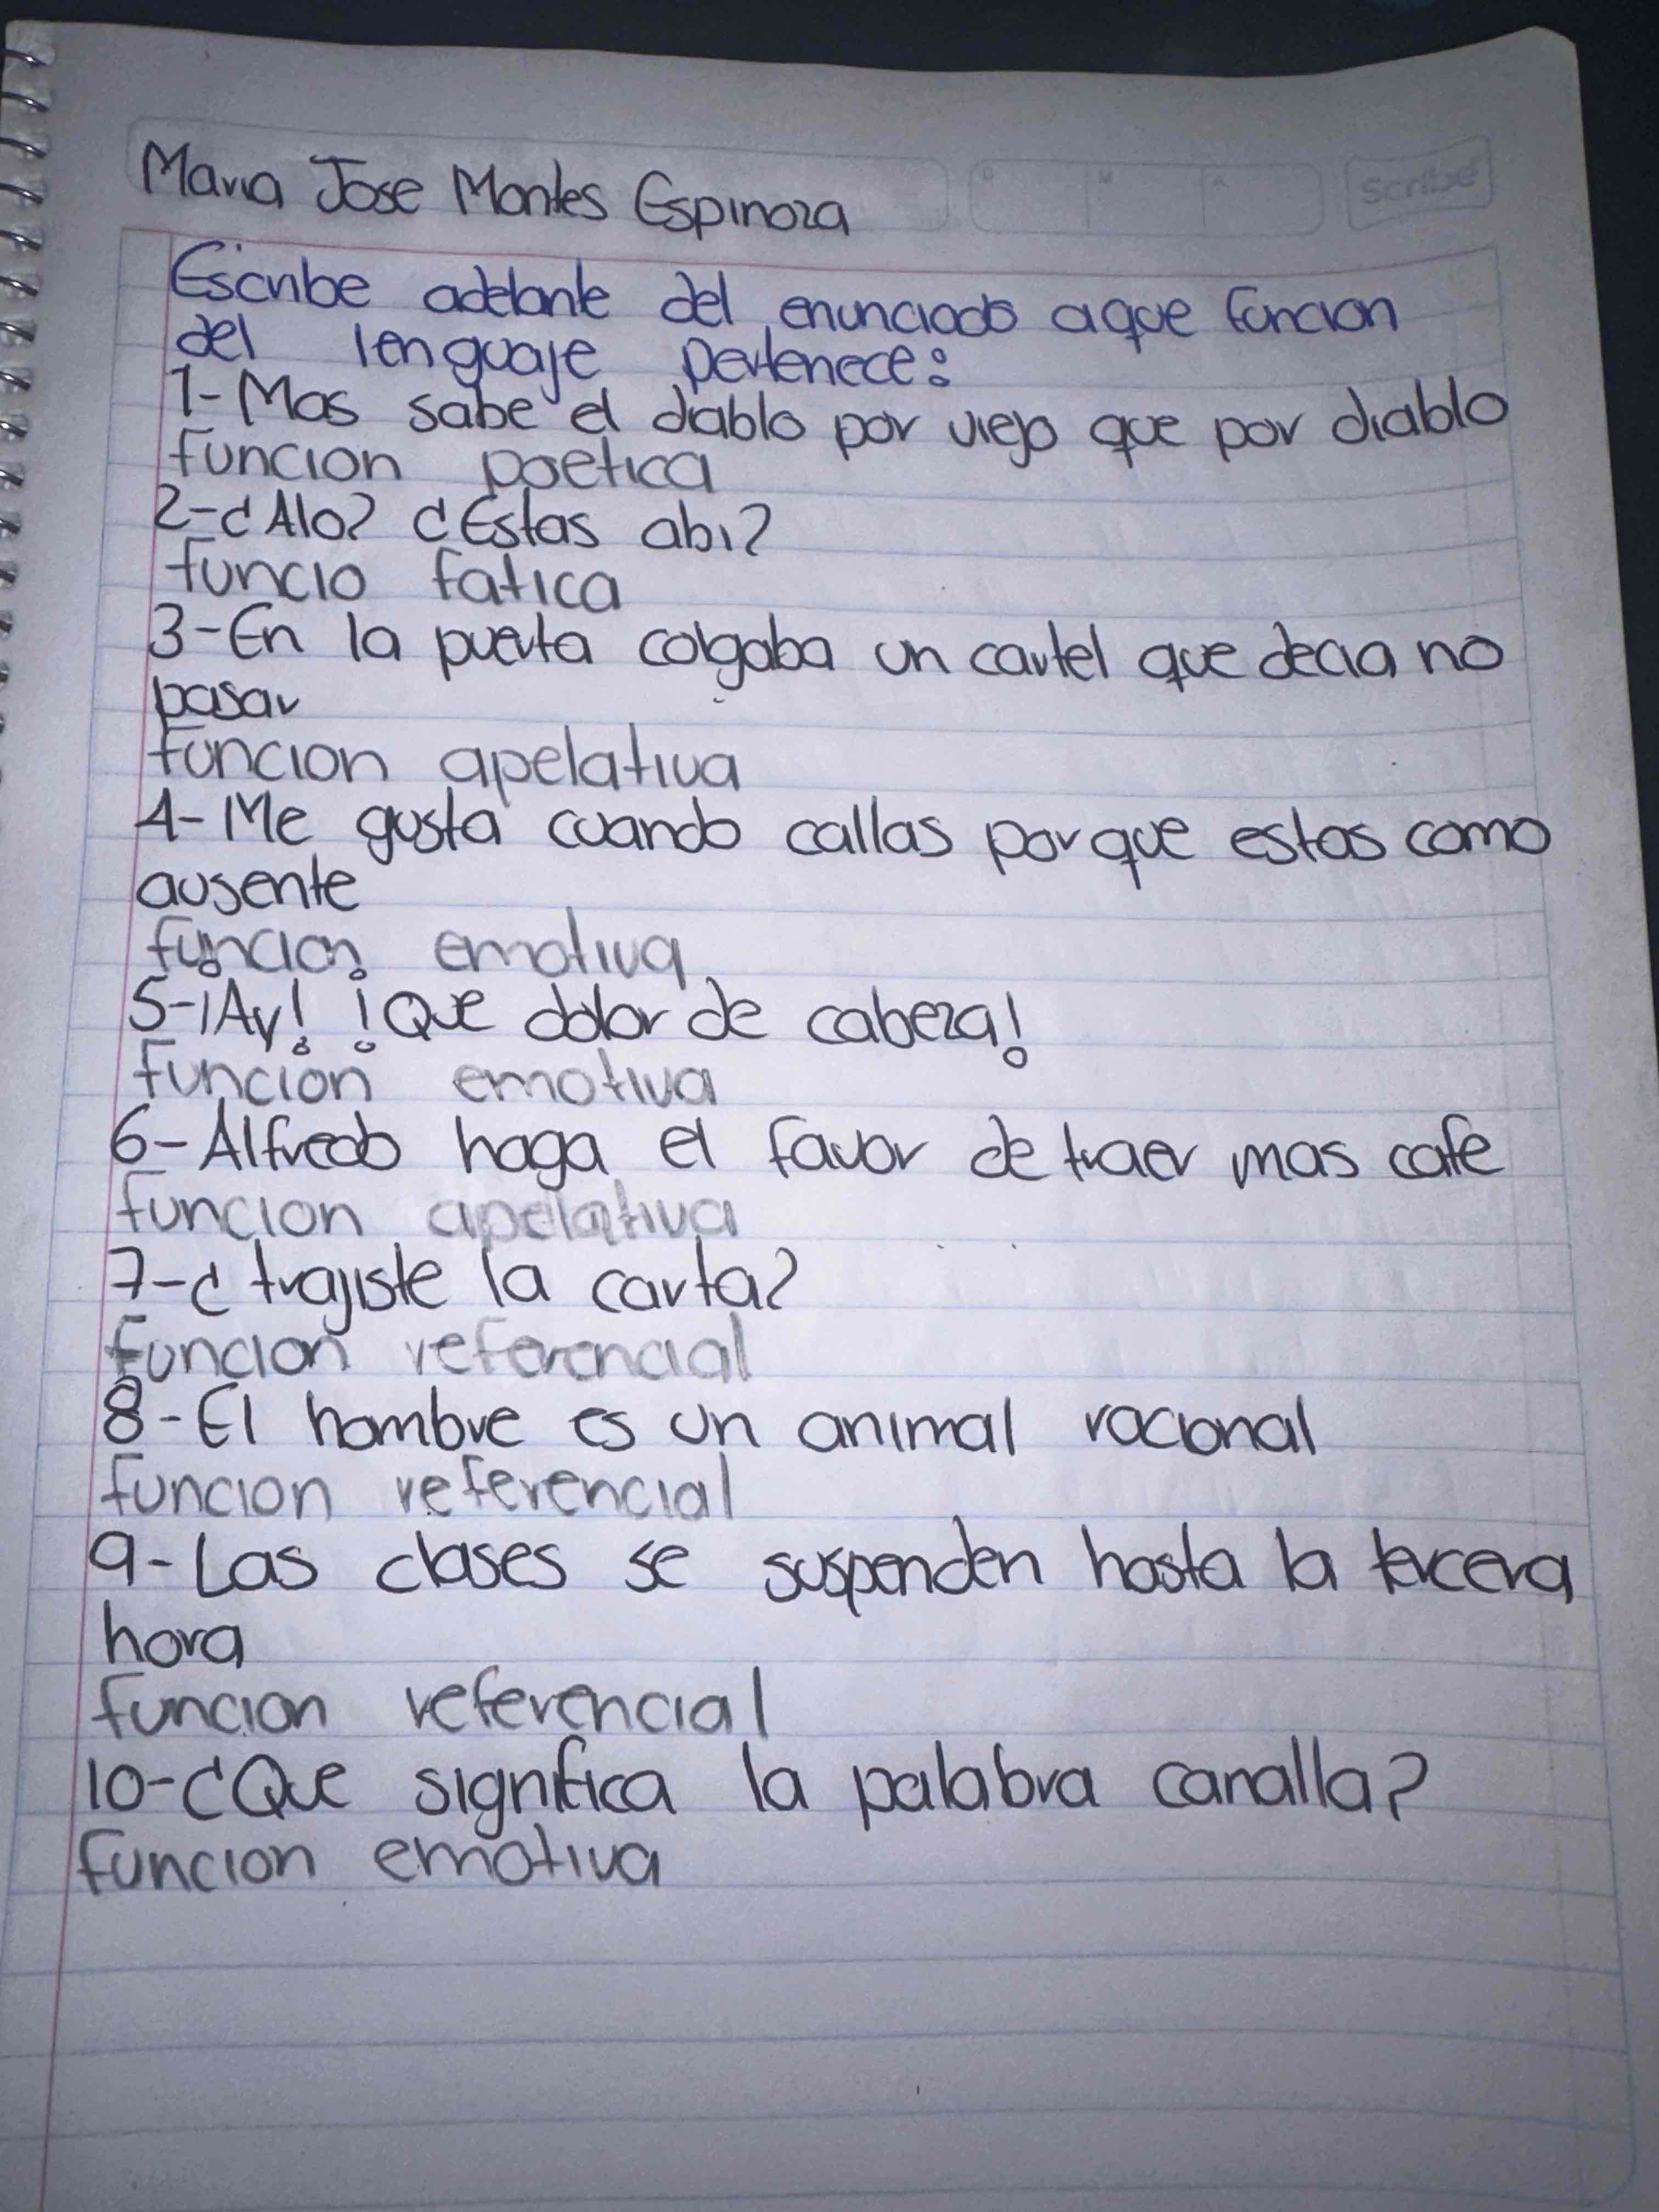 Maria Jose Montes Espinoza
D M A
Scribe
Escribe adelante del enunciado a que funcion
del lenguaje pertenece:
1- Mas sabe el diablo por viejo que por diablo
funcion poetica
2- ¿Alo? ¿Estas abi?
funcio fatica
3- En la puerta colgaba un cartel que decia no
pasar
funcion apelativa
4- Me gusta cuando callas porque estas como
ausente
funcion emotiva
5- ¡Ay! ¡Que dolor de cabeza!
funcion emotiva
6- Alfredo haga el favor de traer mas cafe
funcion apelativa
7- ¿trajiste la carta?
funcion referencial
8- El hombre es un animal racional
funcion referencial
9- Las clases se suspenden hasta la tercera
hora
funcion referencial
10- ¿Que significa la palabra canalla?
funcion emotiva